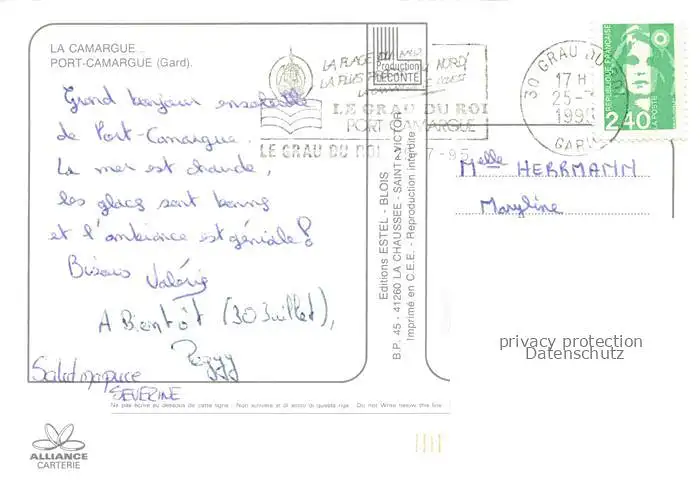 LA CAMARGUE...
PORT-CAMARGUE (Gard).
Grand bonjour ensoleillé
de Port-Camargue.
La mer est chaude,
les glaces sont bonnes
et l'ambiance est géniale!
Bisous Valérie
A Bientôt (30 Juillet),
Peggy
Salut ma puce
SEVERINE
Ne pas écrire au dessous de cette ligne - Non scrivere al di sotto di questa riga - Do not Write below this line
ALLIANCE
CARTERIE
LA PLAGE DU
LA PLUS
Production
LECONTE
LE GRAU DU ROI
PORT CAMARGUE
LE GRAU DU ROI 7-95
Editions ESTEL - BLOIS
B.P. 45 - 41260 LA CHAUSSEE - SAINT-VICTOR
Imprimé en C.E.E. - Reproduction interdite
30 GRAU DU ROI
17 H
25-7
1995
GARD
REPUBLIQUE FRANÇAISE
LA POSTE
2,40
Melle HERRMANN
Maryline
privacy protection
Datenschutz